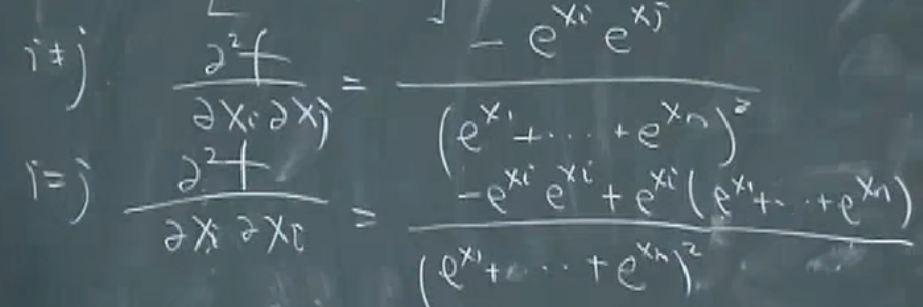 i≠j ∂²f/∂xᵢ∂xⱼ = -e^{xᵢ} e^{xⱼ}/(e^{x₁}+⋯+e^{xₙ})²
i=j ∂²f/∂xᵢ∂xᵢ = -e^{xᵢ} e^{xᵢ} + e^{xᵢ}(e^{x₁}+⋯+e^{xₙ})/(e^{x₁}+⋯+e^{xₙ})²